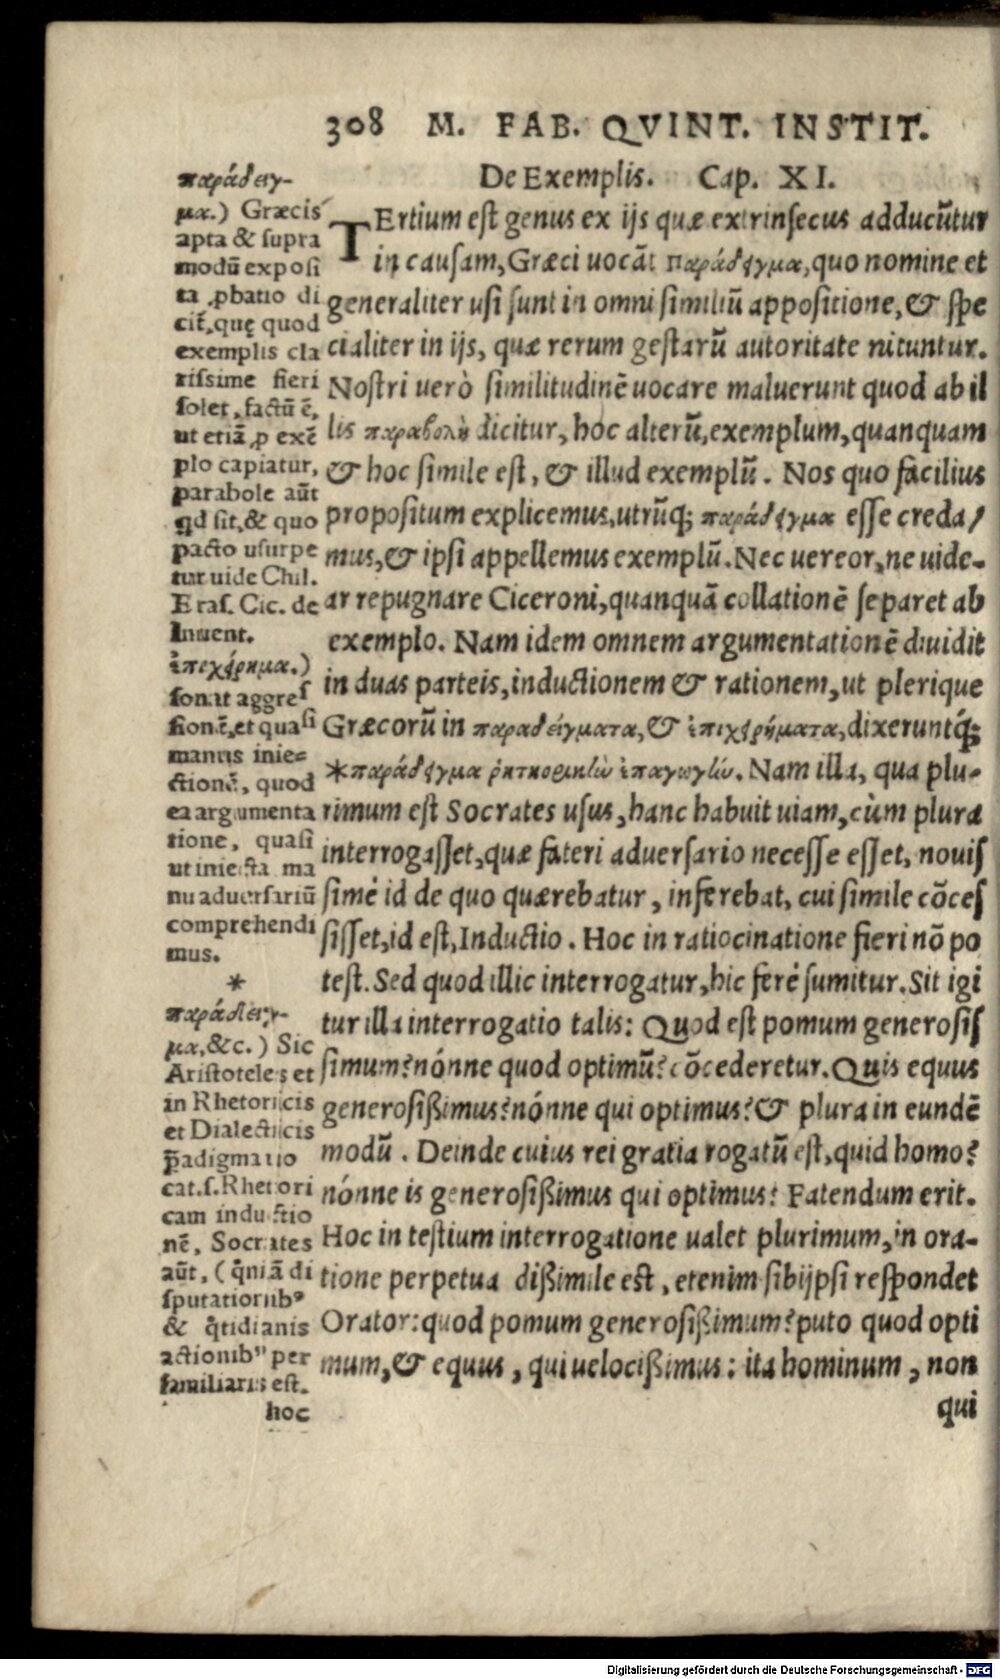 308 M. FAB. QVINT. INSTIT.
De Exemplis. Cap. XI.
TErtium est genus ex ijs quæ extrinsecus adducũtur
in causam, Græci uocãt παράδειγμα, quo nomine et
generaliter usi sunt in omni similiũ appositione, & spe
cialiter in ijs, quæ rerum gestarũ autoritate nituntur.
Nostri uerò similitudinẽ uocare maluerunt quod ab il
lis παραβολὴ dicitur, hoc alterũ, exemplum, quanquam
& hoc simile est, & illud exemplũ. Nos quo facilius
propositum explicemus, utrũq; παράδειγμα esse creda/
mus, & ipsi appellemus exemplũ. Nec uereor, ne uide-
ar repugnare Ciceroni, quanquã collationẽ separet ab
exemplo. Nam idem omnem argumentationẽ diuidit
in duas parteis, inductionem & rationem, ut plerique
Græcorũ in παραδείγματα, & ἐπιχειρήματα, dixeruntq́;
*παράδειγμα ῥητορικὴν ἐπαγωγὴν. Nam illa, qua plu-
rimum est Socrates usus, hanc habuit uiam, cùm plura
interrogasset, quæ fateri aduersario necesse esset, nouis
simè id de quo quærebatur, inferebat, cui simile cõces
sisset, id est, Inductio. Hoc in ratiocinatione fieri nõ po
test. Sed quod illic interrogatur, hic ferè sumitur. Sit igi
tur illa interrogatio talis: Quod est pomum generosis
simum? nónne quod optimũ? cõcederetur. Quis equus
generosißimus? nónne qui optimus? & plura in eundẽ
modũ. Deinde cuius rei gratia rogatũ est, quid homo?
nónne is generosißimus qui optimus? Fatendum erit.
Hoc in testium interrogatione ualet plurimum, in ora-
tione perpetua dißimile est, etenim sibijpsi respondet
Orator: quod pomum generosißimum? puto quod opti
mum, & equus, qui uelocißimus: ita hominum, non
qui
παράδειγ-
μα.) Græcis
apta & supra
modũ exposi
ta ꝓbatio di
cit̃, quę quod
exemplis cla
rissime fieri
solet, factũ ẽ,
ut etiã ꝓ exẽ
plo capiatur,
parabole aũt
qd sit, & quo
pacto usurpe
tur uide Chil.
Eras. Cic. de
Inuent.
ἐπιχείρημα.)
sonat aggres
sionẽ, et quasi
manus inie=
ctionẽ, quod
ea argumenta
tione, quasi
ut iniecta ma
nu aduersariũ
comprehendi
mus.
*
παράδειγ-
μα, &c.) Sic
Aristoteles et
in Rhetoricis
et Dialecticis
p̃adigma uo
cat. s. Rhetori
cam inductio
nẽ, Socrates
aũt, (q̃niã di
sputationibꝰ
& q̃tidianis
actionibꝰ per
familiaris est.
hoc
Digitalisierung gefördert durch die Deutsche Forschungsgemeinschaft - DFG